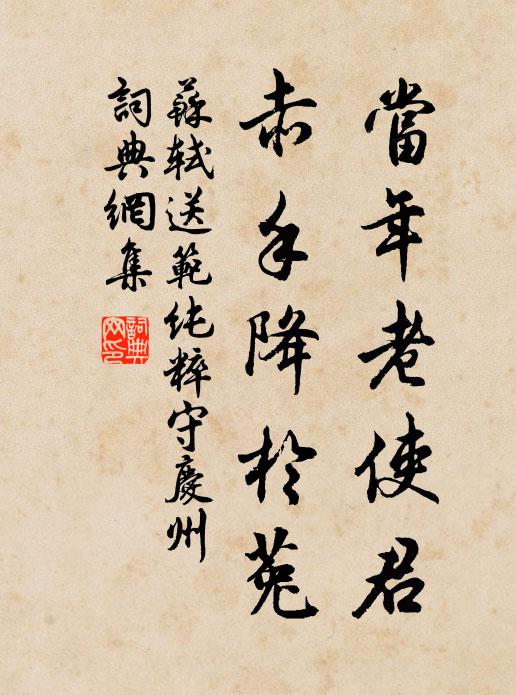 當年老使君
赤手降於菟
蘇軾送範純粹守慶州
詞典網集
詞典
网印